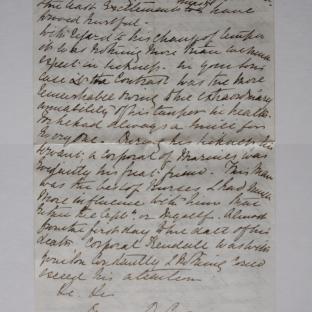 the least excitement to have
proved hurtful.
With regard to his change of temper
it was nothing more than we must
expect in sickness. in your son's
case the contrast was the more
remarkable owing to the extraordinary
amiability of his temper in health
for he had always a smile for
everyone. During his sickness his
servant, a corporal of Marines was
his great friend. This man
was the best of nurses & had much
more influence with him than
either the Captn. or myself. Almost
from the first day to the date of his
death Corporal Kendall was with
your son constantly & nothing could
exceed his attention